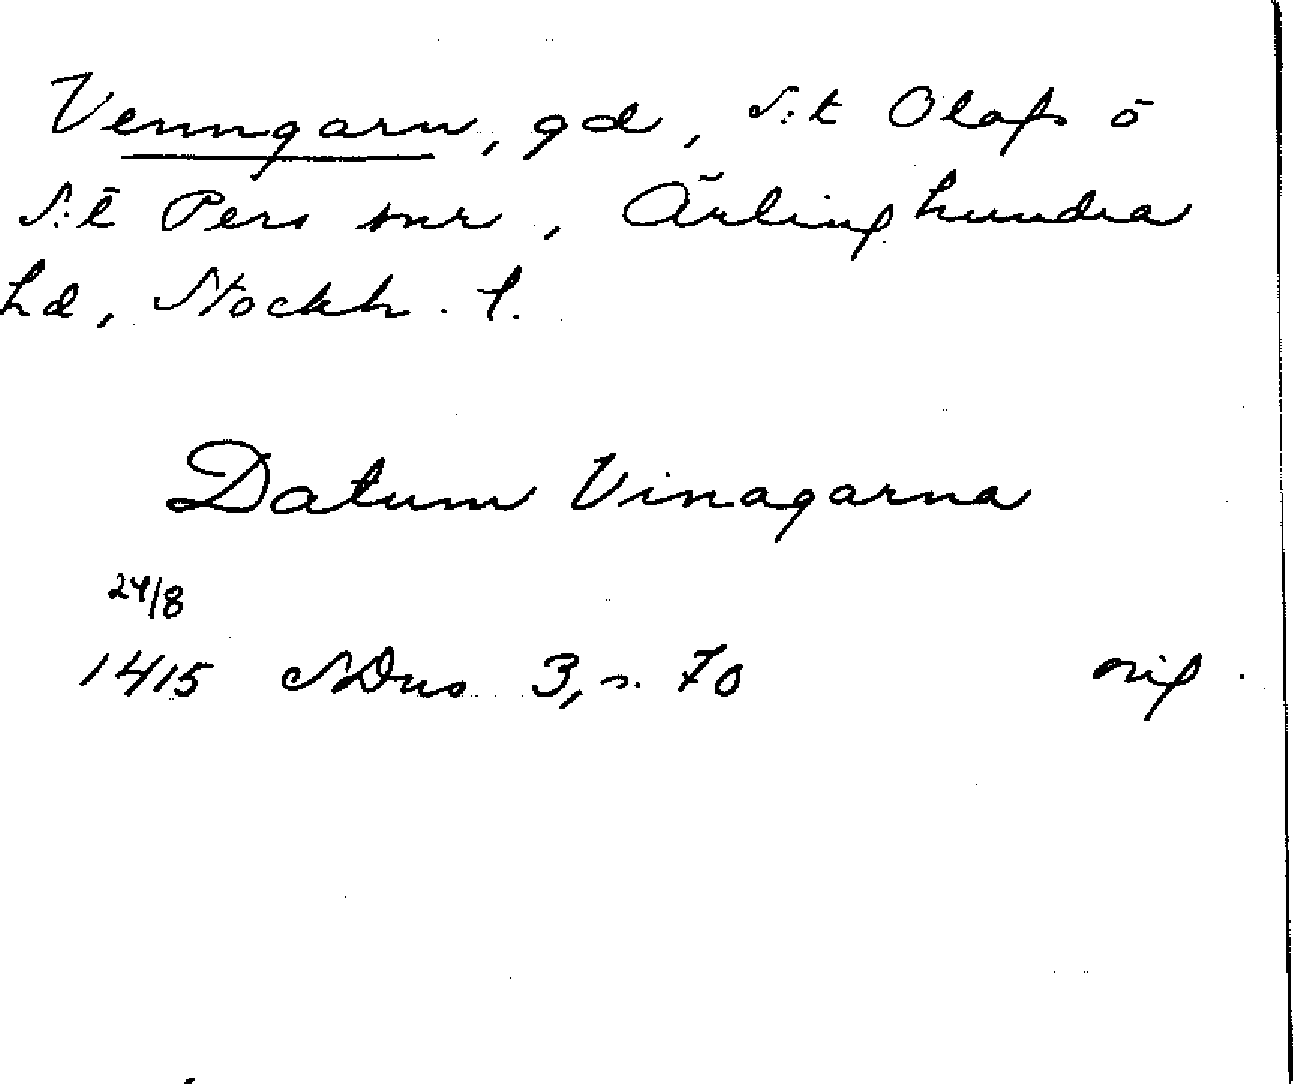 Venngarn, gd, S:t Olafs o
S:t Pers snr, Ärlinghundra
hd, Stockh. l.
Datum Vinagarna
24/8
1415 SDns 3, s. 70 orig.